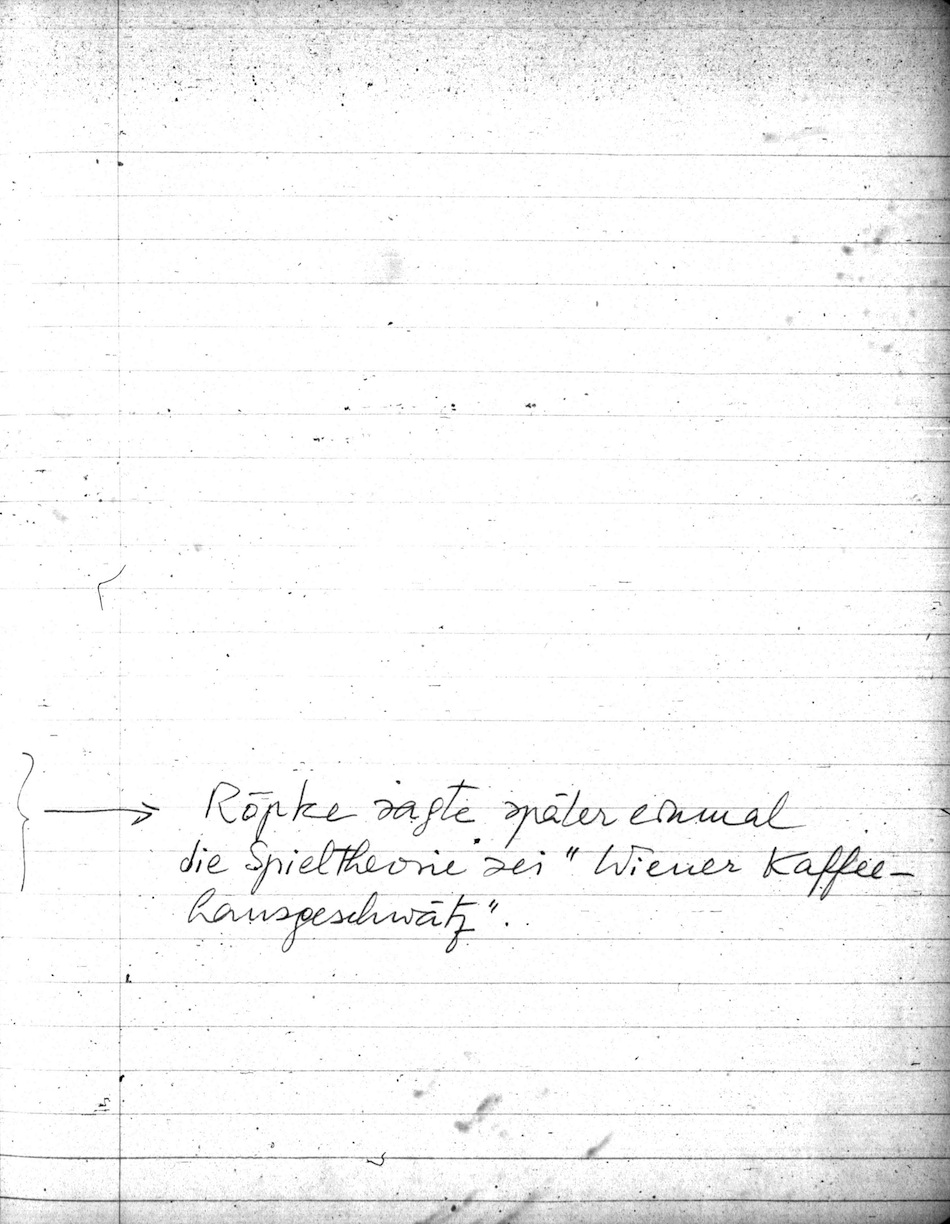 Röpke sagte später einmal
die Spieltheorie sei "Wiener Kaffee-
hausgeschwätz".